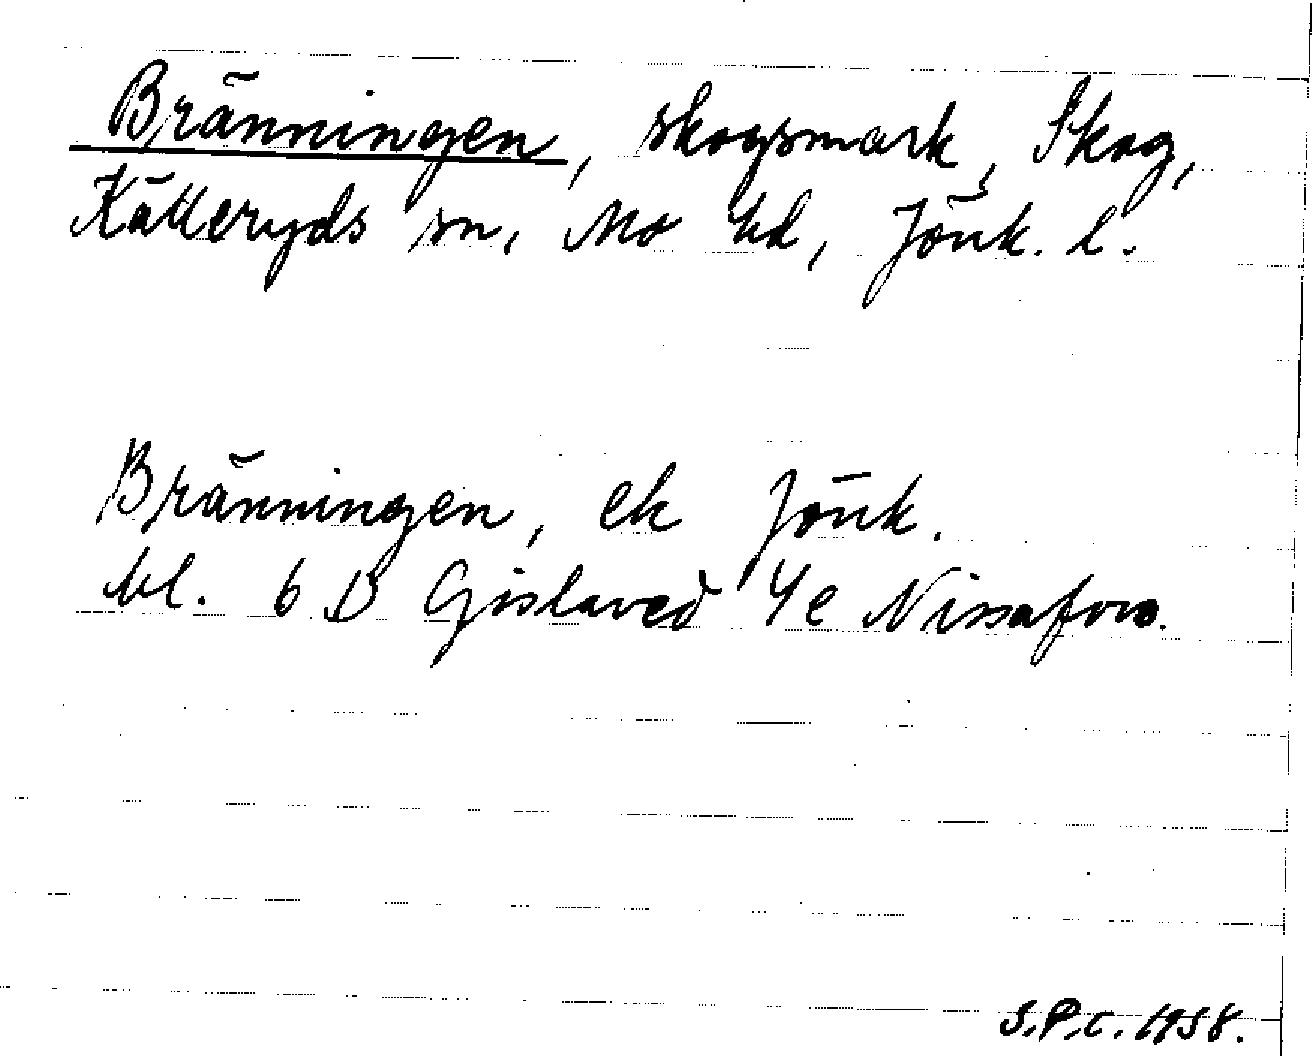 Bränningen, skogsmark, Skog,
Kätteryds sn, Mo hd, Jönk. l.
Bränningen, ek Jönk.
bl. 6 D Gislaved 4e Nissafors.
S.P.C. 1958.